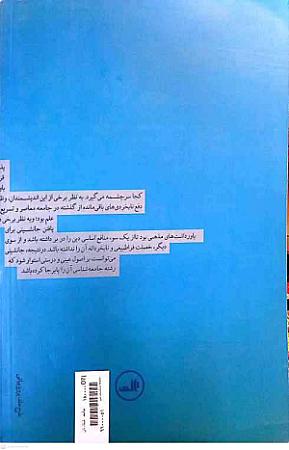 پذ
قر
باو
کجا سرچشمه می‌گیرد. به نظر برخی از این اندیشمندان، وظ
دفع نابخردی‌های باقی‌مانده از گذشته در جامعه معاصر و تسریع
علم بود؛ وبه نظر برخی
یافتن جانشینی برای
باورداشت‌های مذهبی بود تا از یک سو، منافع اساسی دین را در بر داشته باشد و از سوی
دیگر، خصلت فراطبیعی و نابخردانه آن را نداشته باشد. درنتیجه، جانشینی
می‌توانست بر اصول عینی و درستی استوار شود که
رشته جامعه‌شناسی آن را پابرجا کرده باشد.
ثالث